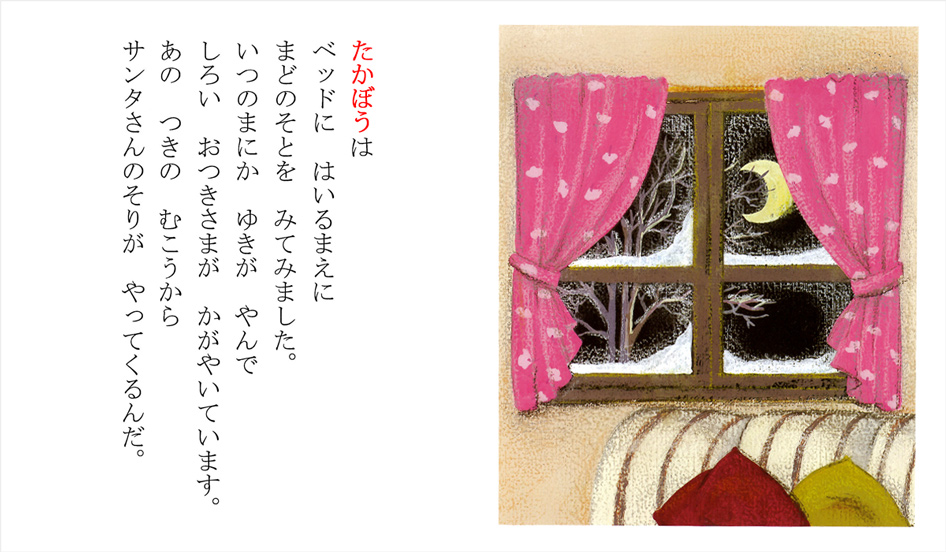 たかぼうは
ベッドに　はいるまえに
まどのそとを　みてみました。
いつのまにか　ゆきが　やんで
しろい　おつきさまが　かがやいています。
あの　つきの　むこうから
サンタさんのそりが　やってくるんだ。